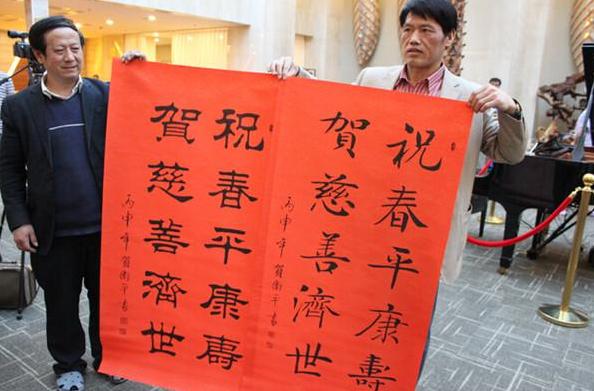 祝春平康壽
賀慈善濟世
丙申年賀衛平書
祝春平康壽
賀慈善濟世
丙申年賀衛平書